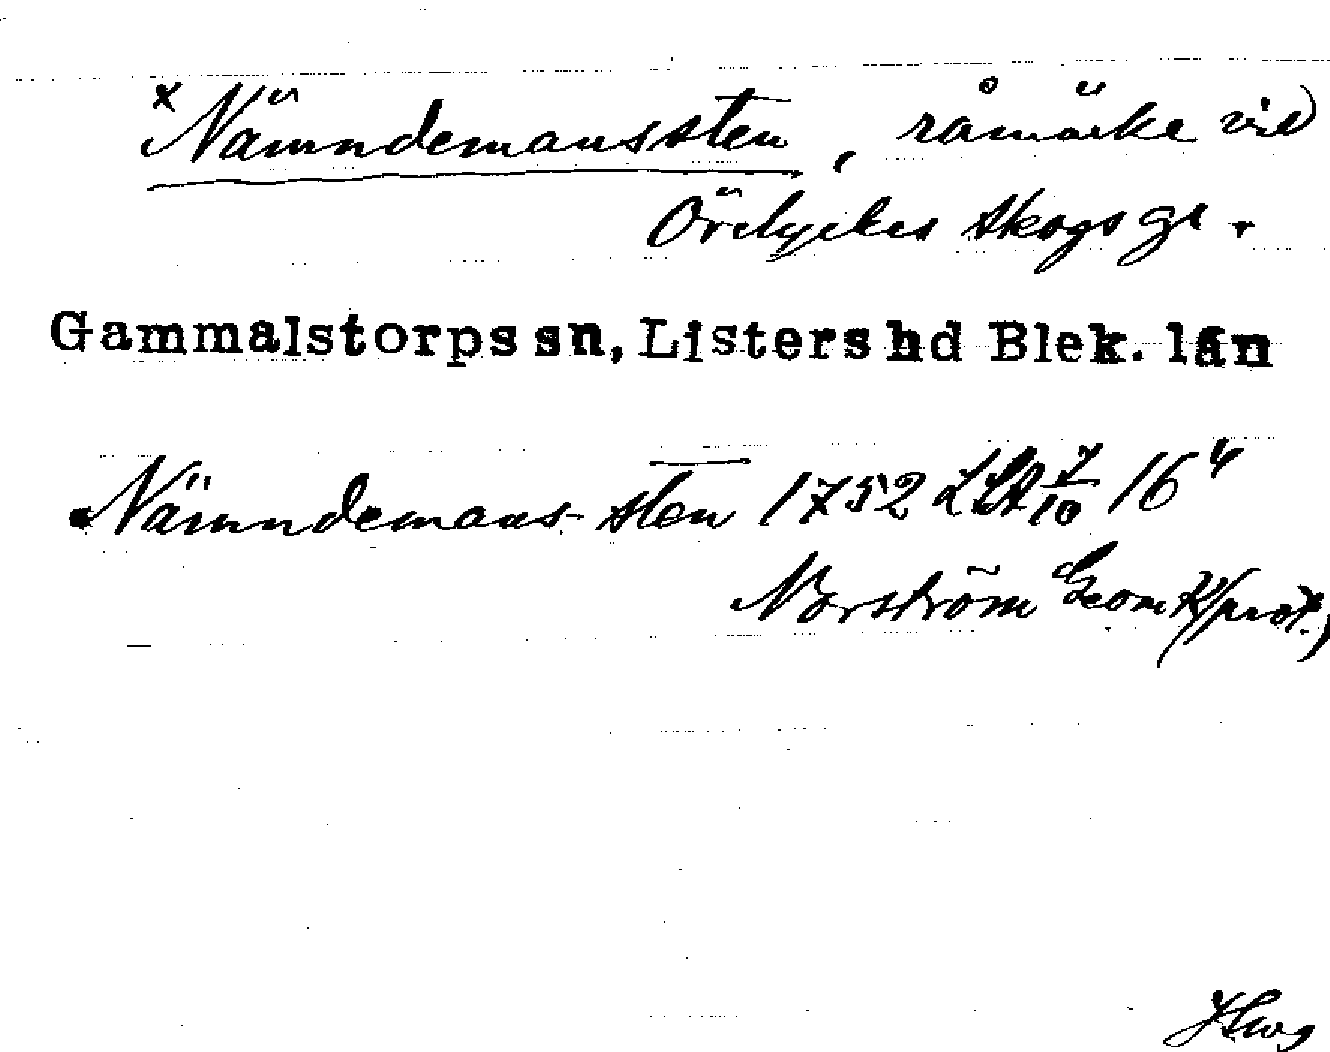 x Nämndemanssten, råmärke vid
Örelyckes skogs gr.
Gammalstorps sn, Listers hd Blek. län
Nämndemans-sten 1752 LSA 7/10 16 4
Norström Geom